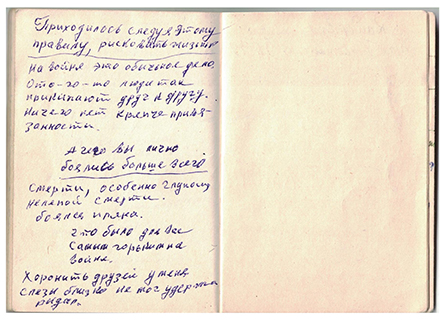 Приходилось следуя этому
правилу, рисковать жизнью
На войне это обычное дело.
Ото-го-то люди так
прикипают друг к другу.
Ничего нет крепче привя-
занности.
А чего вы лично
боялись больше всего
Смерти, особенно глупой
нелепой смерти.
боялся плена.
Что было для вас
самым горьким на
войне.
Хоронить друзей у меня
слезы близко не мог удержа
рыдал.